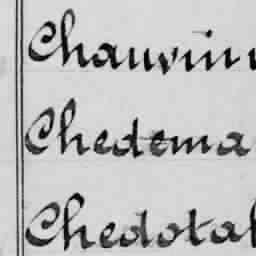 Chauvin
Chedema
Chedotal